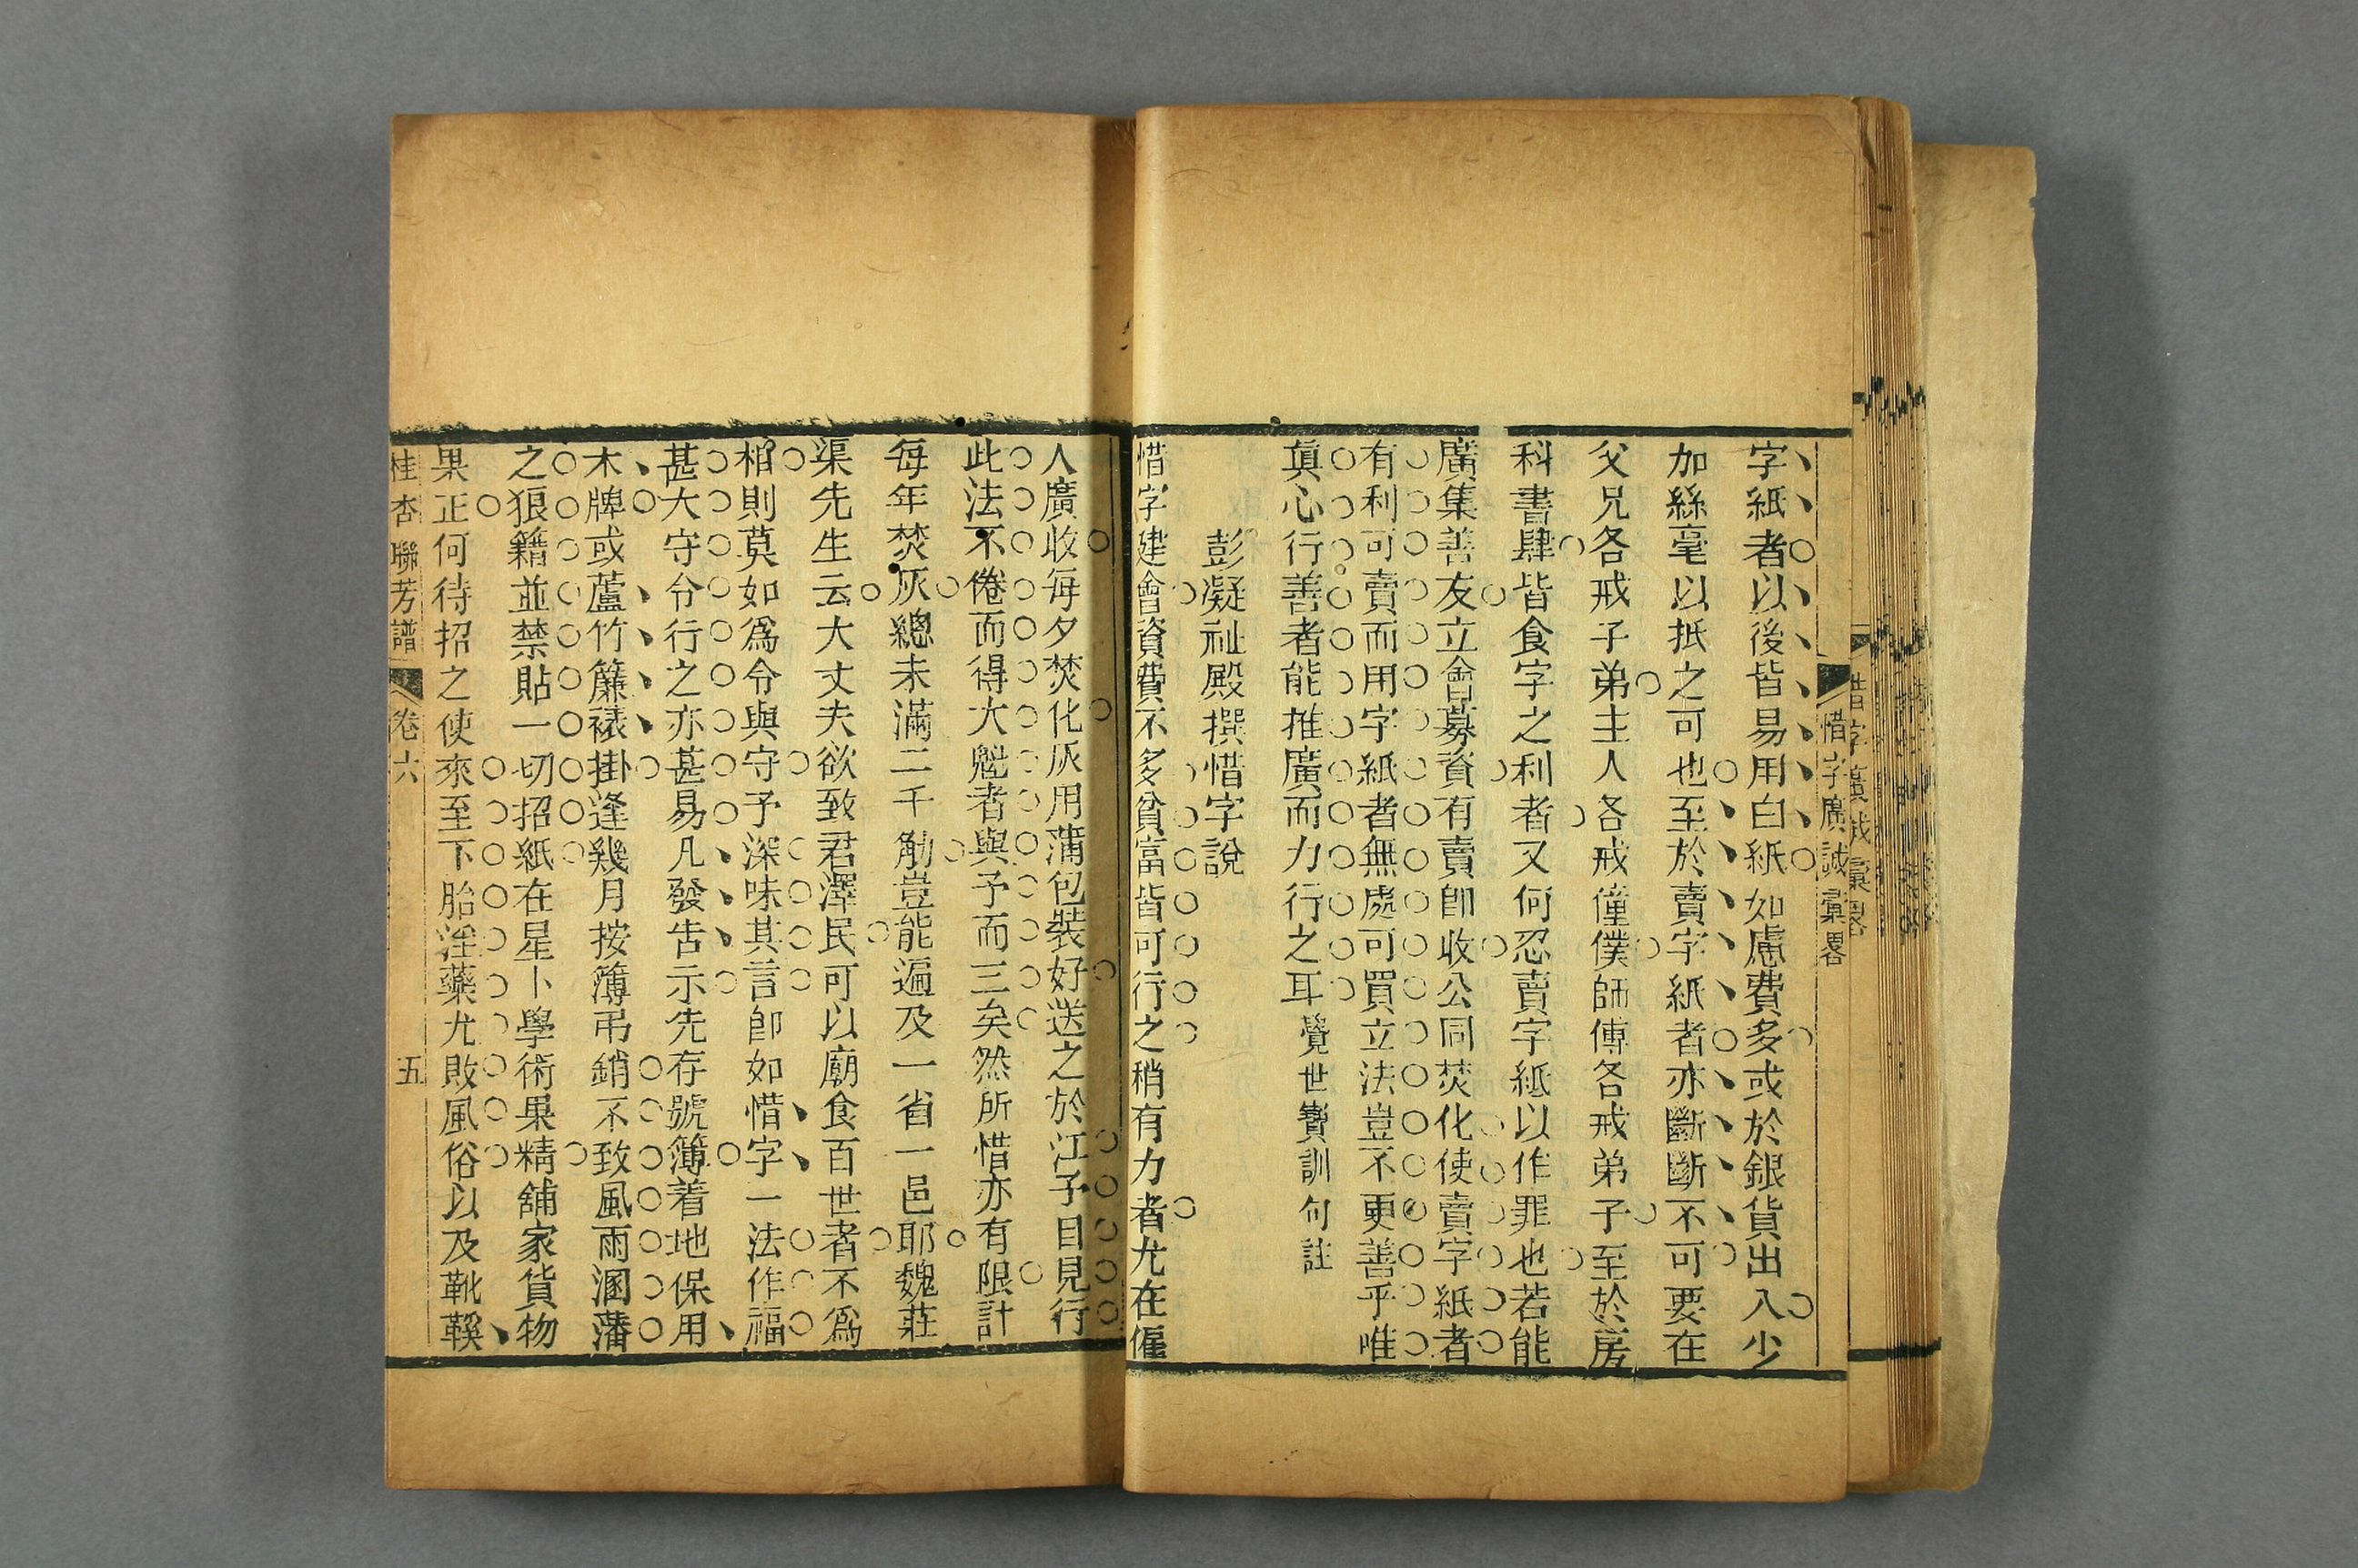 惜字廣誠彙畧
字紙者以後皆易用白紙如慮費多或於銀貨出入少
加絲毫以抵之可也至於賣字紙者亦斷斷不可要在
父兄各戒子弟主人各戒僮僕師傅各戒弟子至於房
科書肆皆食字之利者又何忍賣字紙以作罪也若能
廣集善友立會募資有賣卽收公同焚化使賣字紙者
有利可賣而用字紙者無處可買立法豈不更善乎唯
眞心行善者能推廣而力行之耳覺世寶訓句註
彭凝祉殿撰惜字說
惜字建會資費不多貧富皆可行之稍有力者尤在僱
人廣收每夕焚化灰用蒲包裝好送之於江予目見行
此法不倦而得大魁者與予而三矣然所惜亦有限計
每年焚灰總未滿二千觔豈能遍及一省一邑耶魏莊
渠先生云大丈夫欲致君澤民可以廟食百世者不爲
相則莫如爲令與守予深味其言卽如惜字一法作福
甚大守令行之亦甚易凡發告示先存號簿着地保用
木牌或蘆竹簾裱掛逢幾月按簿弔銷不致風雨溷藩
之狼籍並禁貼一切招紙在星卜學術果精舖家貨物
果正何待招之使來至下胎淫藥尤敗風俗以及靴鞵
桂杏聯芳譜 卷六 五